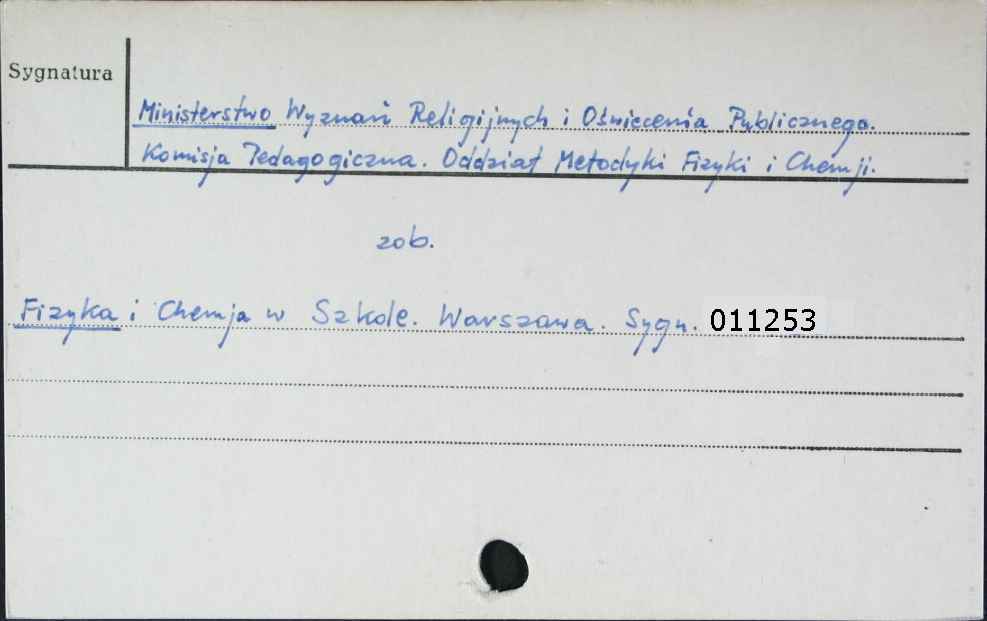 Sygnatura
Ministerstwo Wyznań Religijnych i Oświecenia Publicznego.
Komisja Pedagogiczna. Oddział Metodyki Fizyki i Chemji.
zob.
Fizyka i Chemja w Szkole. Warszawa. Sygn. 011253